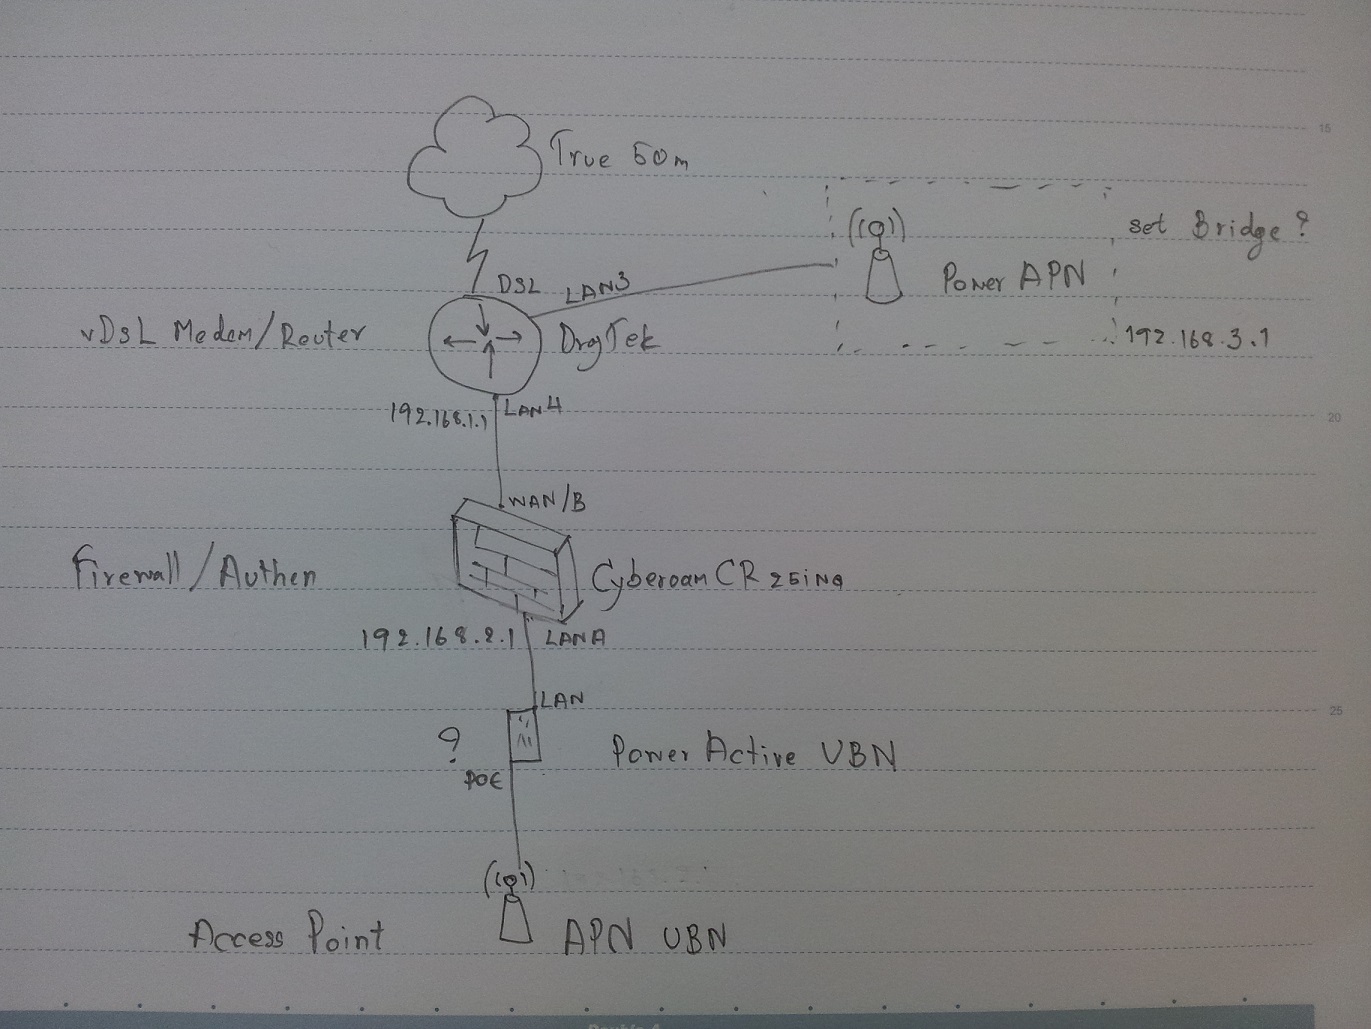 True 50m
set Bridge ?
DSL LAN3
Power APN
vDSL Modem/Router
DrayTek
192.168.3.1
192.168.1.1
LAN4
WAN/B
Firewall/Authen
Cyberoam CR 25ing
192.168.2.1
LAN A
LAN
?
Power Active UBN
POE
Access Point
APN UBN
15
20
25